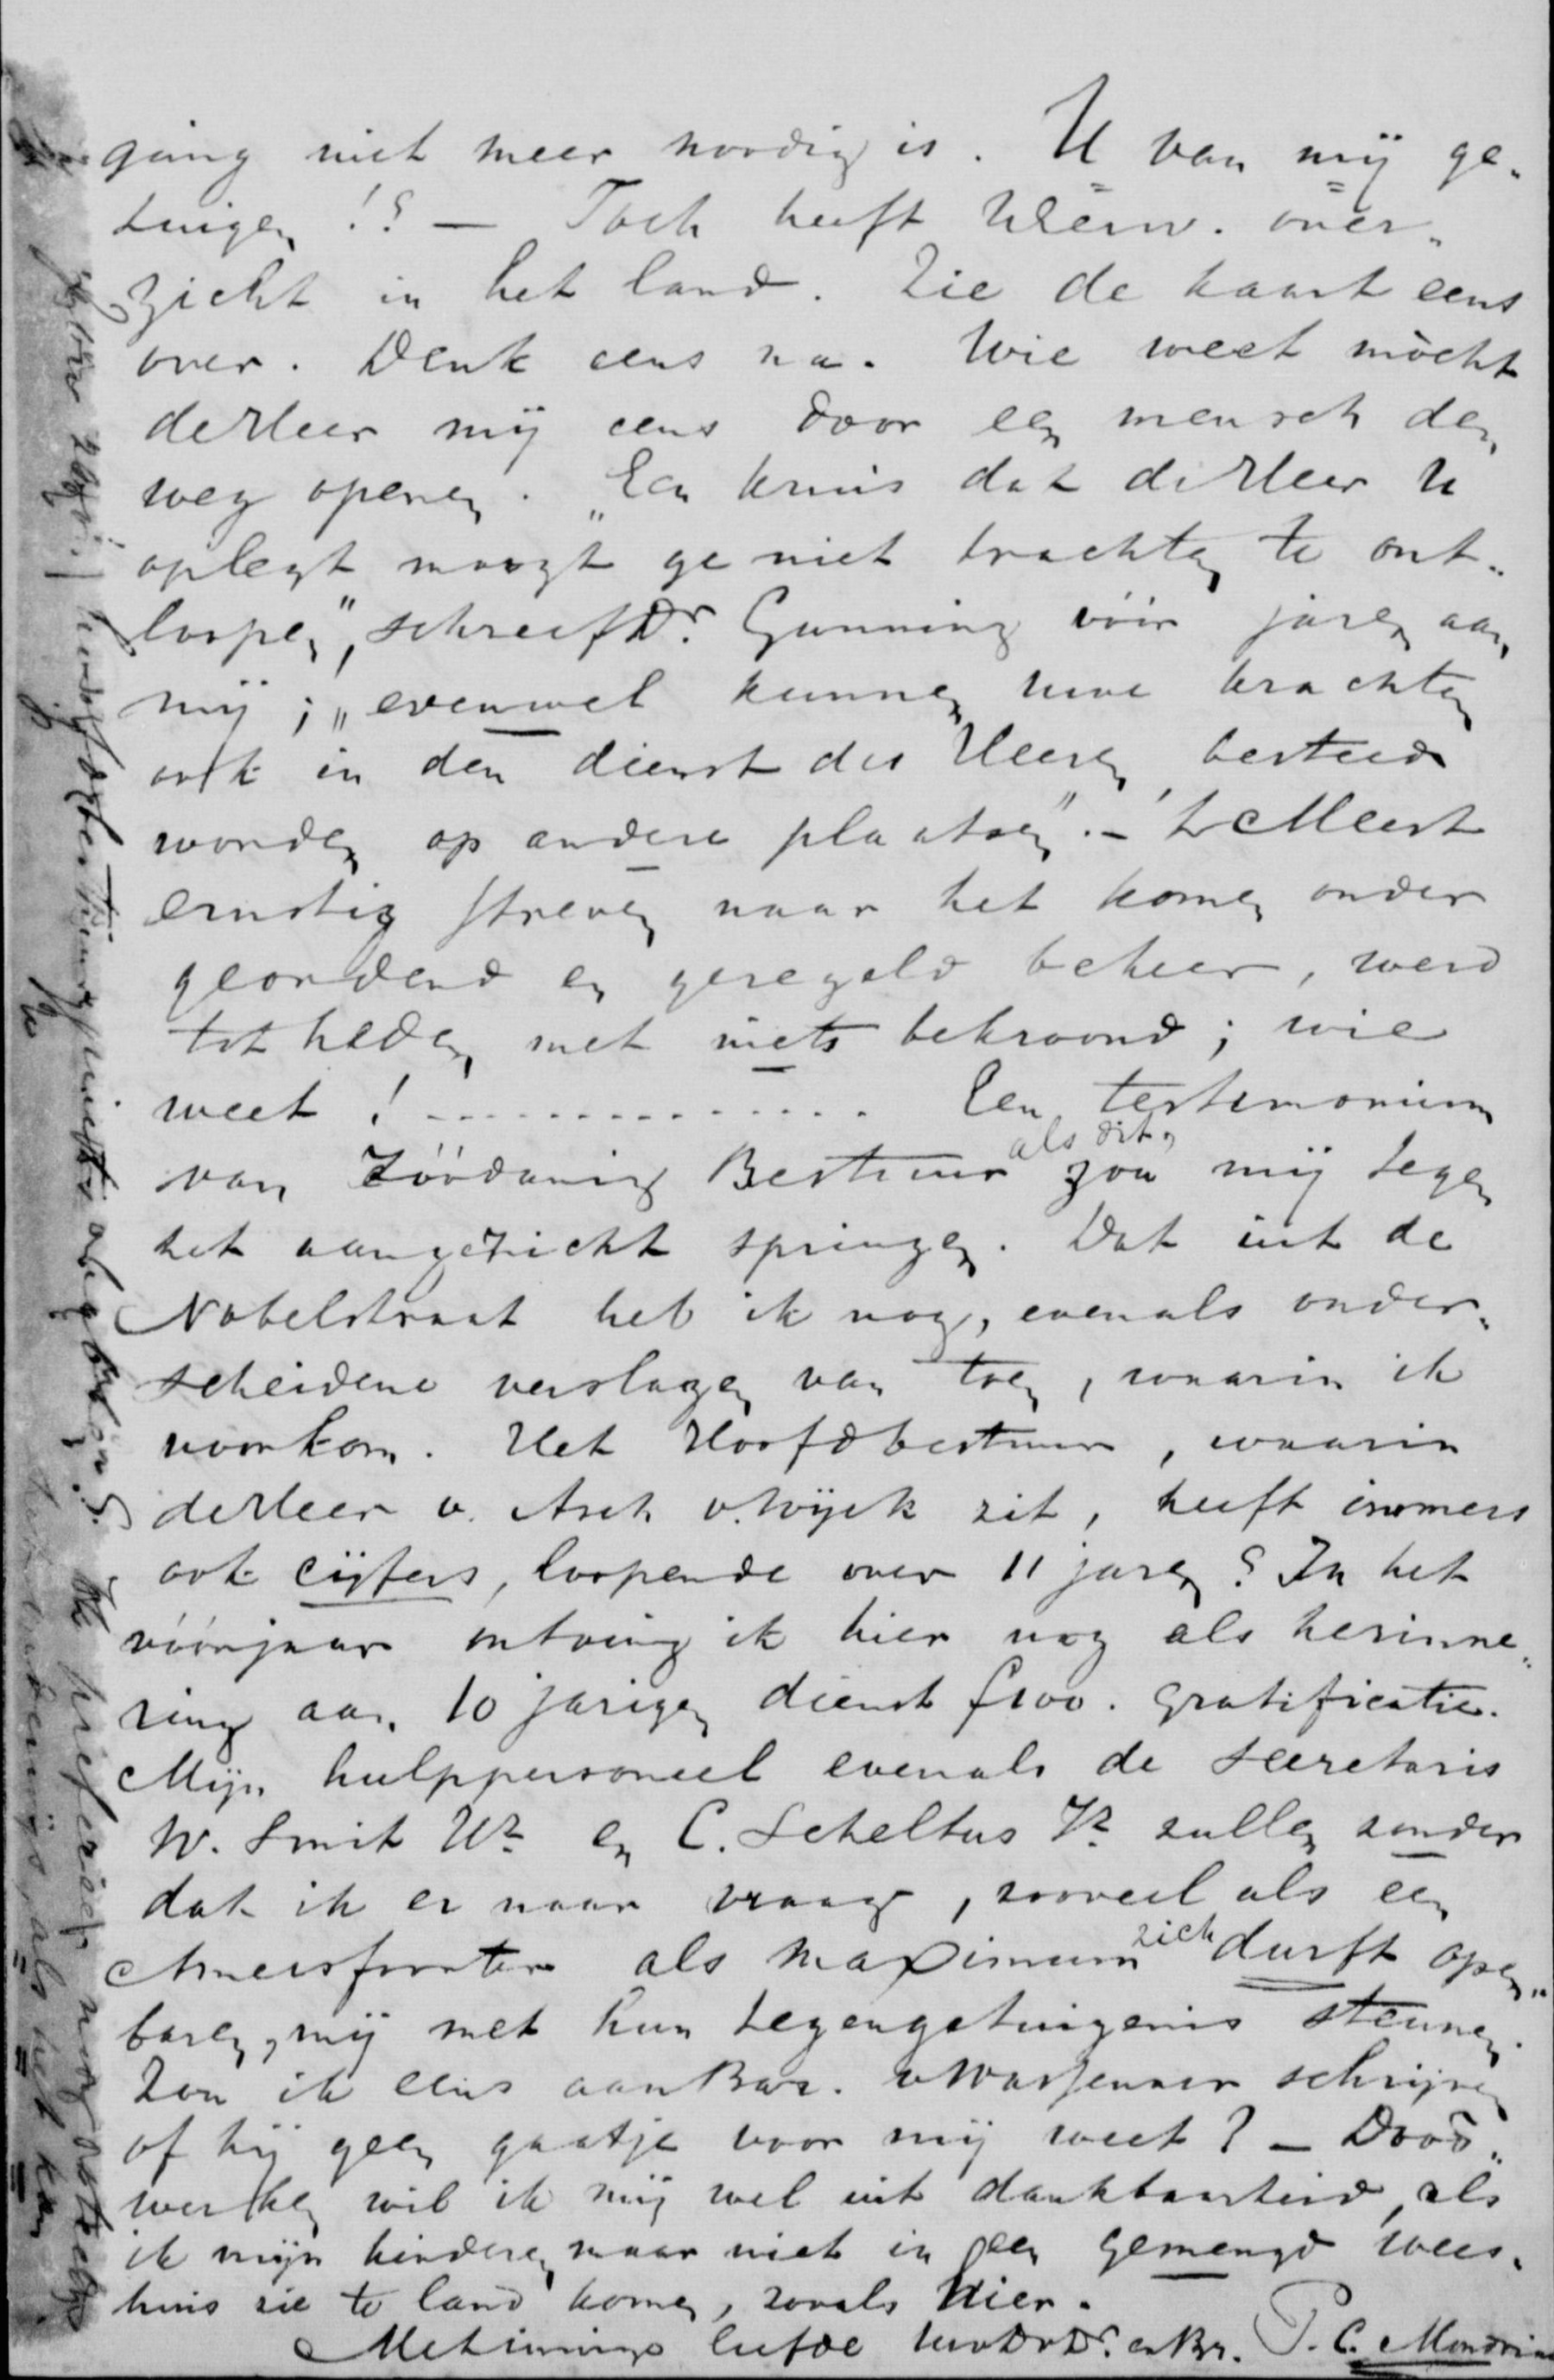 gang niet meer noodig is. U van mij ge-
tuigen!? — Toch heeft UEerw. over-
zicht in het land. Zie de kaart eens
over. Denk eens na. Wie weet mòcht
de Heer mij eens door een mensch den
weg openen. „Een kruis dat de Heer U
oplegt moogt ge niet trachten te ont-
loopen", schreef Dr. Gunning vóór jaren aan
mij; „evenwel kunnen uwe krachten
ook in den dienst des Heeren besteed
worden op andere plaatsen". — 't Meest
ernstig streven naar het komen onder
geordend en geregeld beheer, werd
tot heden met niets bekroond; wie
weet! .............. Een testimonium
van zóódanig Bestuur als dit, zou mij tegen
het aangezicht springen. Dat uit de
Nobelstraat heb ik nog, evenals onder-
scheidene verslagen van toen, waarin ik
voorkom. Het Hoofdbestuur, waarin
de Heer v. Asch v. Wijck zit, heeft immers
ook cijfers, loopende over 11 jaren? In het
vóórjaar ontving ik hier nog als herinne-
ring aan 10 jarigen dienst f100. gratificatie.
Mijn hulppersoneel evenals de secretaris
W. Smit Wz en C. Scheltus Jz zullen zonder
dat ik er naar vraag, zooveel als een
Amersfoorter als maximum zich durft open-
baren, mij met hun tegengetuigenis steunen.
Zou ik eens aan Bar. v Wassenaer schrijven
of hij geen gaatje voor mij weet? — Dood-
werken wil ik mij wel uit dankbaarheid, als
ik mijn kinderen maar niet in een gemengd wees-
huis zie te land komen, zooals hier.
Met innige liefde Dr. en Br. P. C. Mondri